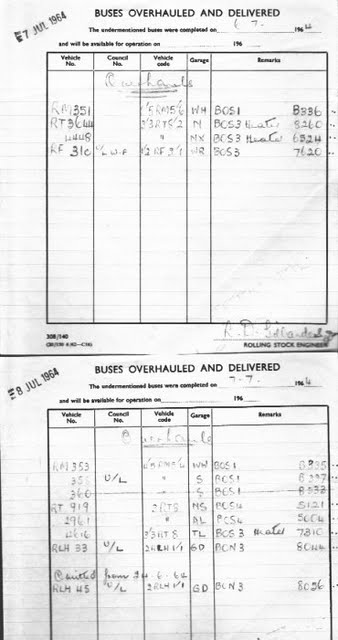 E7 JUL 1964
BUSES OVERHAULED AND DELIVERED
The undermentioned buses were completed on 6. 7. 1964
and will be available for operation on 196
Vehicle No. Council No. Vehicle code Garage Remarks
Overhauls
RM 351 5/6 WH BOS1 8336
RT 3644 2/3RT8/2 N BOS3 Heater 8260
4448 " NX BOS3 Heater 6524
RF 31 U/L W.F 1/2 RF 2/1 WR BOS3 7620
308/140
ROLLING STOCK ENGINEER
E8 JUL 1964
BUSES OVERHAULED AND DELIVERED
The undermentioned buses were completed on 7. 7. 1964
and will be available for operation on 196
Vehicle No. Council No. Vehicle code Garage Remarks
Overhauls
RM 353 WH BOS1 8335
355 U/L " S BOS1 8337
360 " S BOS1
RT 919 2RT8 NS BOS4 5121
2961 " AL BOS4 5004
4616 2/3RT8 TL BOS3 Heater 7310
RLH 33 U/L 2RLH 1/1 GD BCN3 8044
Omitted from 24-6-64
RLH 45 U/L 2RLH 1/1 GD BCN3 8026